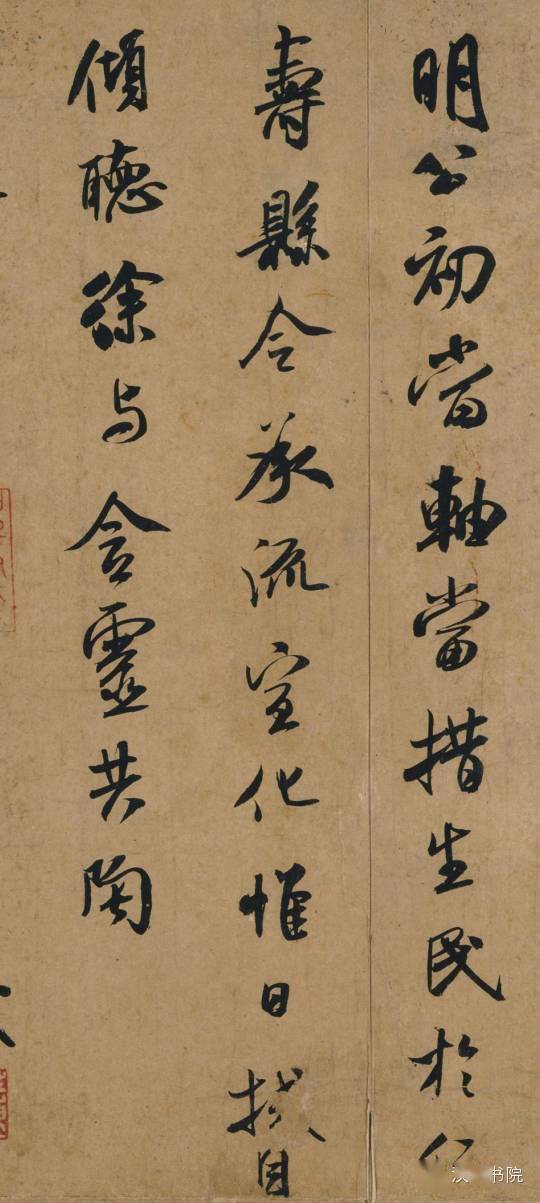 明公初當軸當措生民於仁
壽縣令承流宣化惟日拭目
傾聽徐與含靈共陶
書院